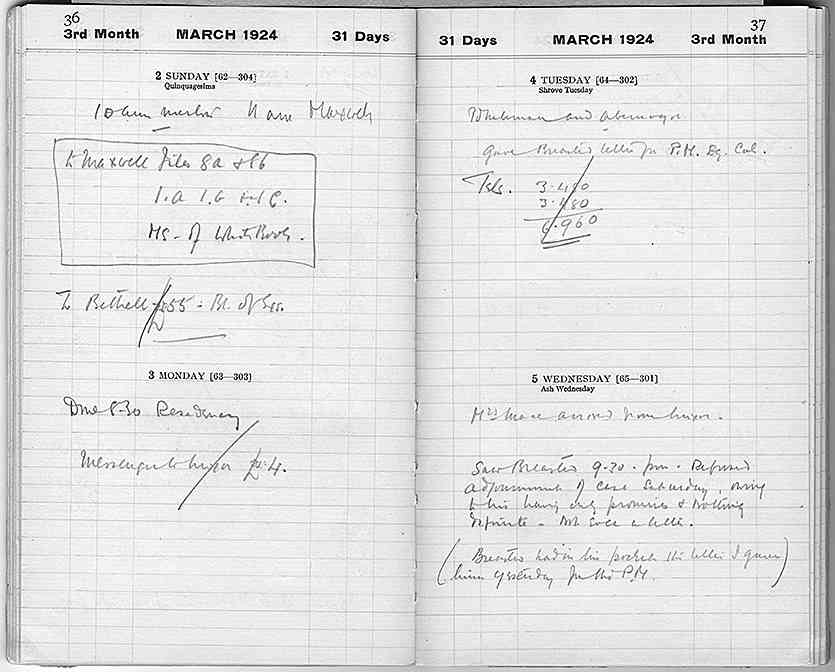 36
3rd Month MARCH 1924 31 Days
2 SUNDAY [62—304]
Quinquagesima
10 am 11 am Maxwell
To Maxwell Files 8a & 16
1.a 1.b & 1c.
MS. of White Book.
To Bethell £55 - Bl. of
3 MONDAY [63—303]
Dine 8-30 Residency
Messenger to Luxor £4.
37
31 Days MARCH 1924 3rd Month
4 TUESDAY [64—302]
Shrove Tuesday
and
Gave Breasted letter for P.M. Eg. Cal.
Tels. 3.480
3.480
6.960
5 WEDNESDAY [65—301]
Ash Wednesday
Mrs Mace arrived from Luxor.
Saw Breasted 9-30. pm. Refused
adjournment of case Saturday, owing
to his having only promises & nothing
definite - not even a letter.
(Breasted had in his pocket the letter I gave
him yesterday for the P.M.)